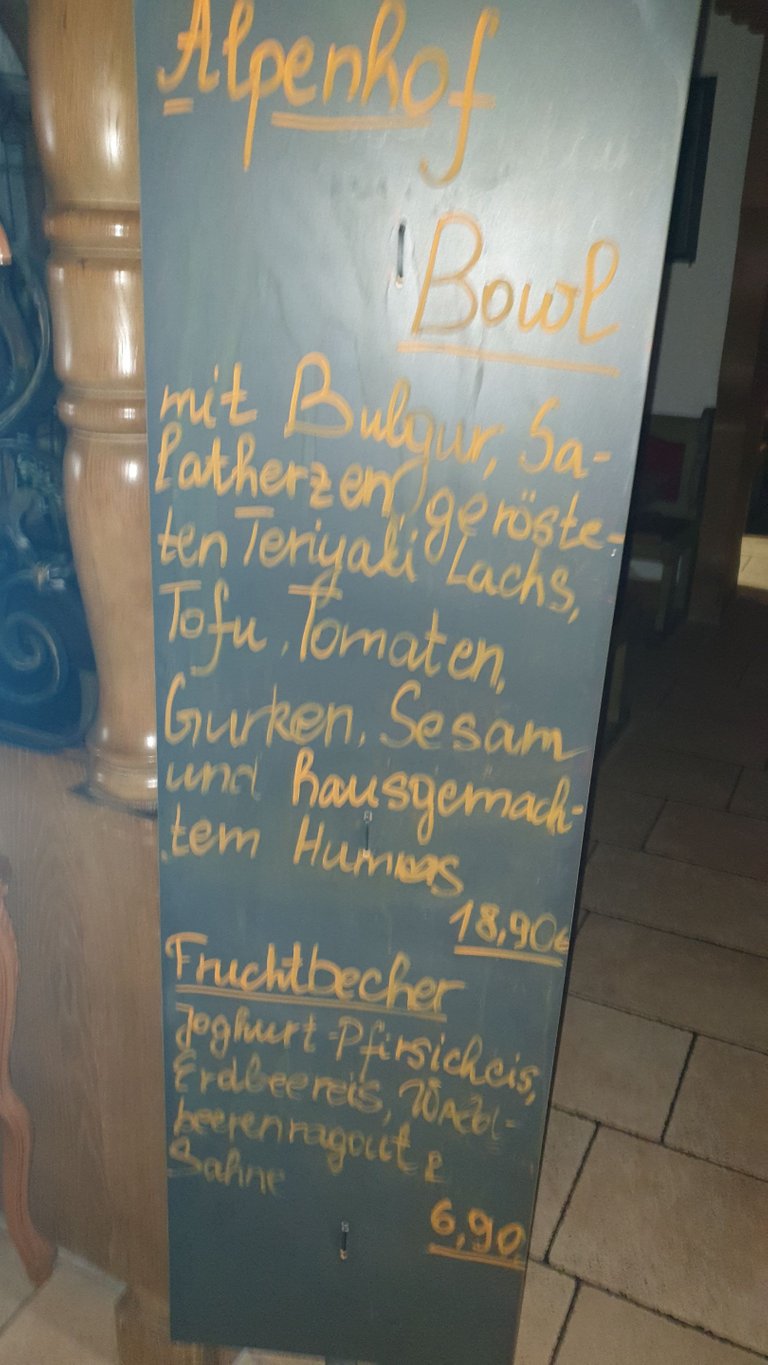 Alpenhof
Bowl
mit Bulgur, Sa-
latherzen, geröste-
ten Teriyaki Lachs,
Tofu, Tomaten,
Gurken, Sesam
und hausgemach-
tem Humus
18,90€
Fruchtbecher
Joghurt-Pfirsicheis,
Erdbeereis, Wald-
beerenragout &
Sahne
6,90